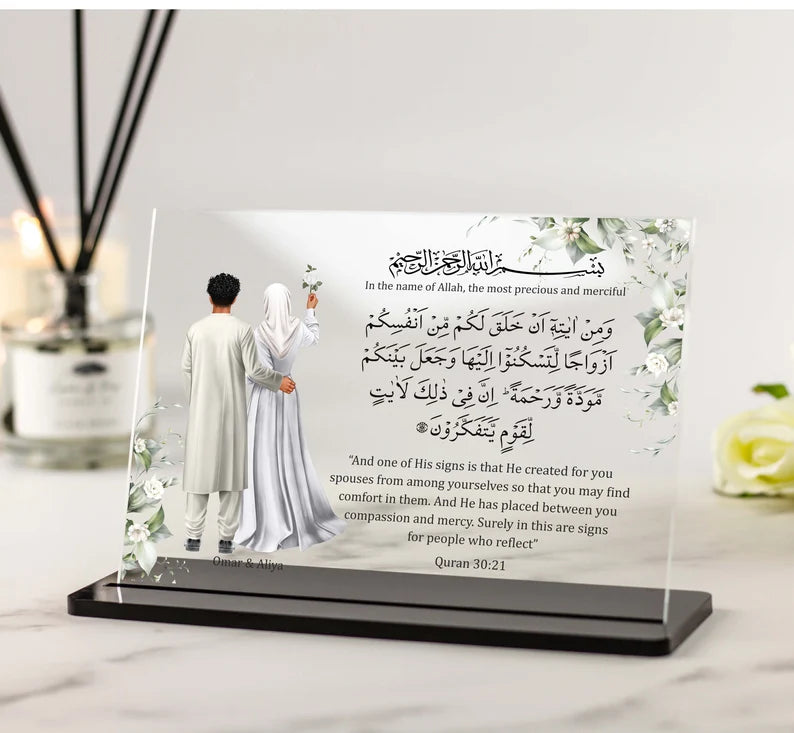 بسم الله الرحمن الرحيم
In the name of Allah, the most precious and merciful
وَمِنْ اٰيٰتِهٖٓ اَنْ خَلَقَ لَكُمْ مِّنْ اَنْفُسِكُمْ
اَزْوَاجًا لِّتَسْكُنُوْٓا اِلَيْهَا وَجَعَلَ بَيْنَكُمْ
مَّوَدَّةً وَّرَحْمَةً ؕ اِنَّ فِيْ ذٰلِكَ لَاٰيٰتٍ
لِّقَوْمٍ يَّتَفَكَّرُوْنَ
“And one of His signs is that He created for you
spouses from among yourselves so that you may find
comfort in them. And He has placed between you
compassion and mercy. Surely in this are signs
for people who reflect”
Quran 30:21
Omar & Aliya